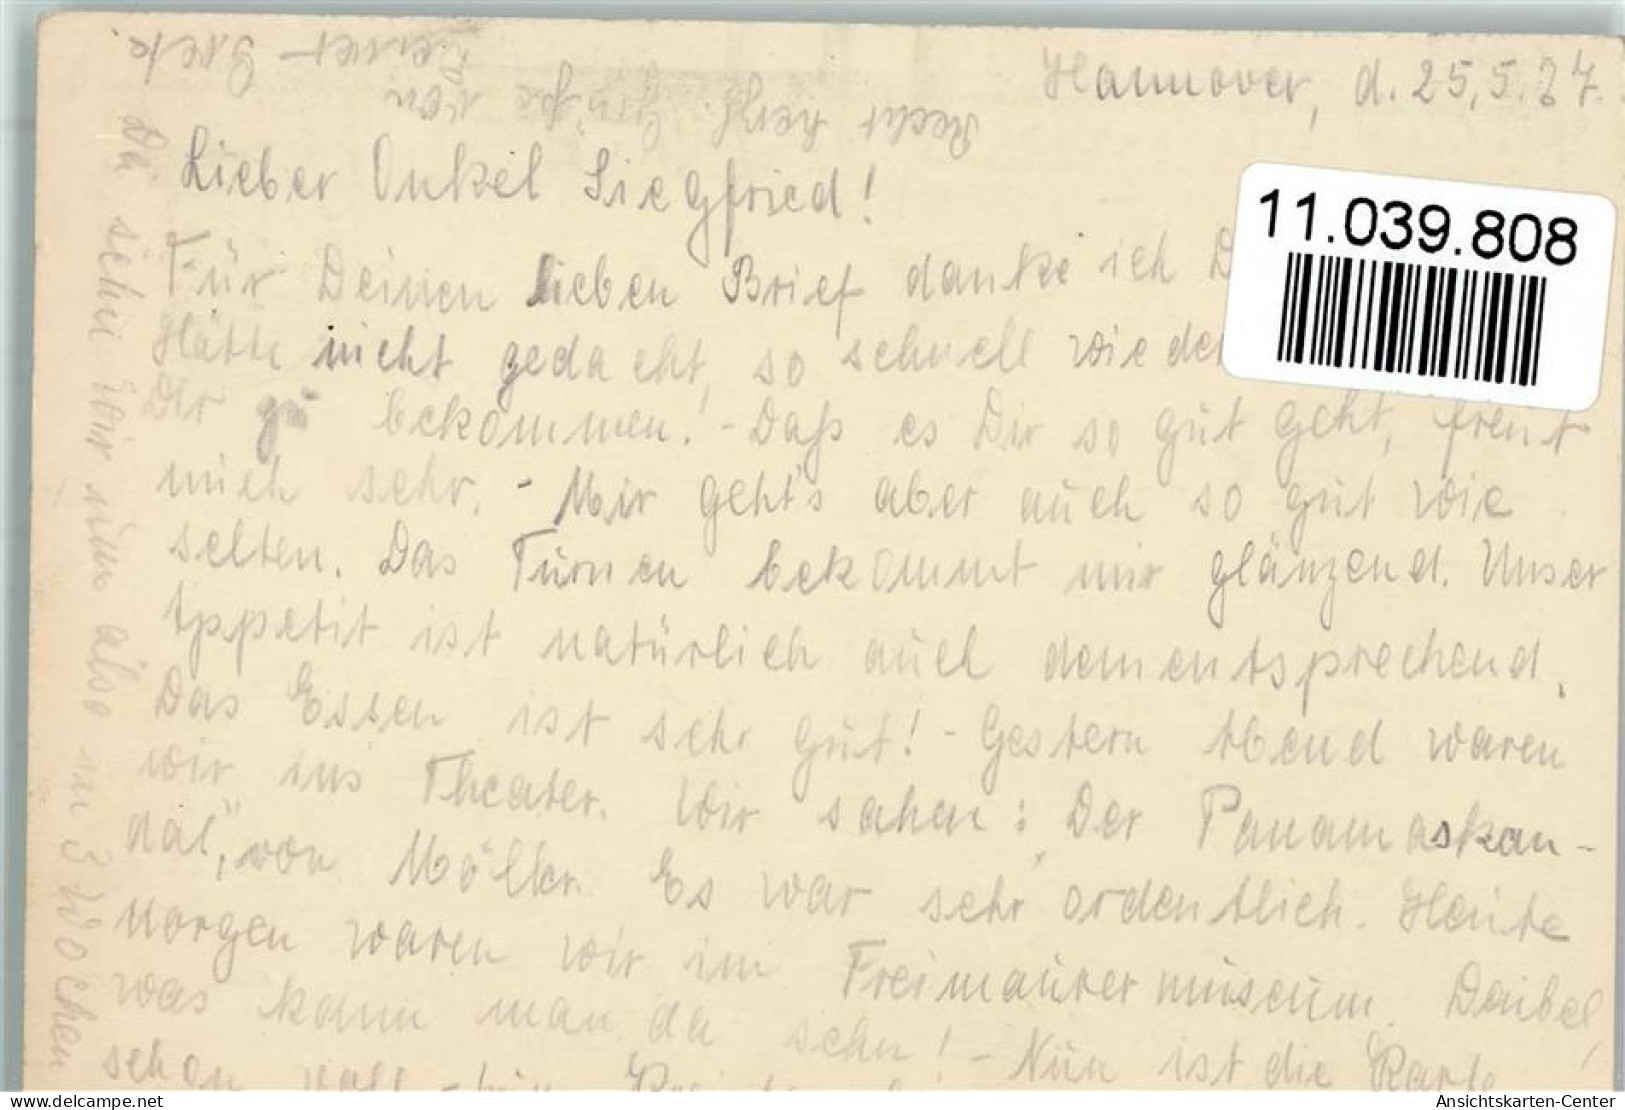 Hannover, d. 25.5.37.
Lieber Onkel Siegfried!
Für Deinen lieben Brief danke ich D
Hätte nicht gedacht, so schnell wieder
Dir zu bekommen! - Daß es Dir so gut geht, freut
mich sehr. - Mir geht's aber auch so gut wie
selten. Das Turnen bekommt mir glänzend. Unser
Appetit ist natürlich auch dementsprechend.
Das Essen ist sehr gut! - Gestern Abend waren
wir ins Theater. Wir sahen: Der Panamaskan-
dal", von Möller. Es war sehr ordentlich. Heute
Morgen waren wir im Freimaurermuseum.
was kann man da sehn! - Nun ist die Karte
schon voll
Da sehn wir uns also in 3 Wochen
Recht herzl. Grüße von
Deiner
11.039.808
delcampe.net
Ansichtskarten-Center